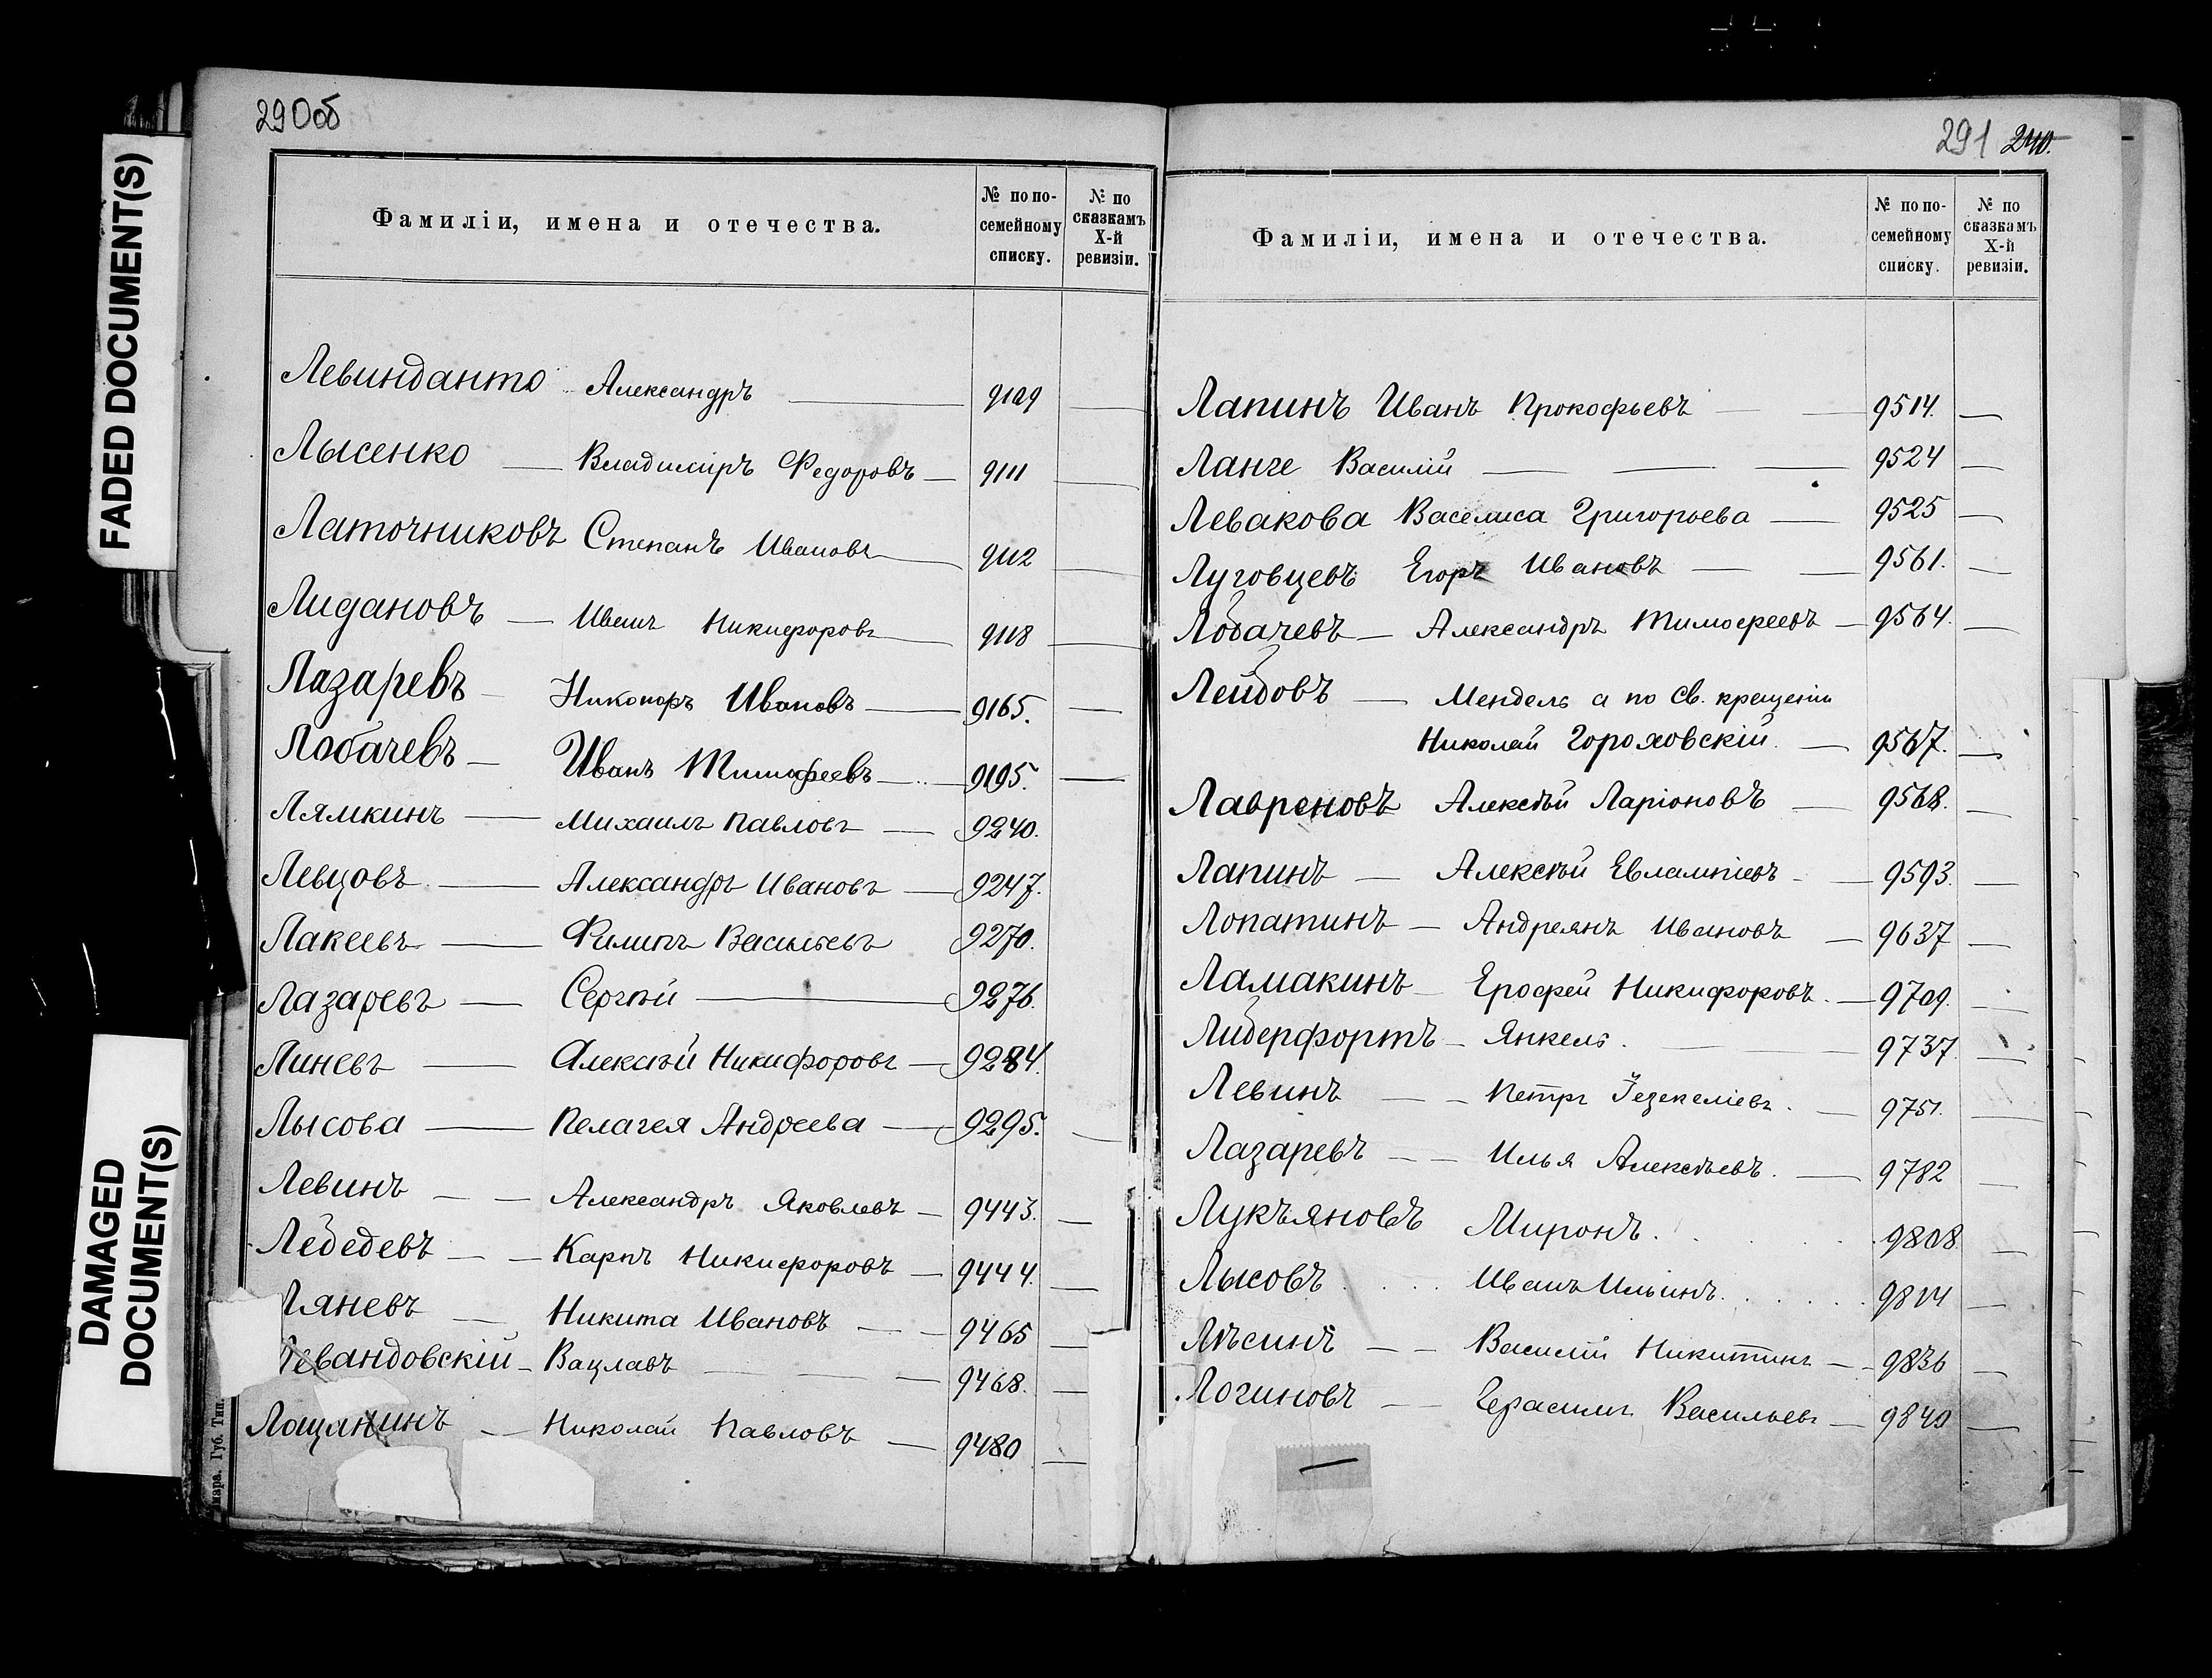 290об
Фамиліи, имена и отечества.
№ по по-
семейному
списку.
№ по
сказкамъ
X-й
ревизіи.
Левинданто Александръ — 9109 —
Лысенко — Владиміръ Федоровъ — 9111 —
Латочниковъ Степанъ Ивановъ — 9112 —
Лидановъ — Иванъ Никифоровъ — 9118 —
Лазаревъ — Никоноръ Ивановъ — 9165. —
Лобачевъ — Иванъ Тимофеевъ — 9195. —
Лямкинъ — Михаилъ Павловъ — 9240.
Левцовъ — Александръ Ивановъ — 9247.
Лакеевъ — Филипъ Васильевъ 9270.
Лазаревъ — Сергѣй — 9276.
Линевъ — Алексѣй Никифоровъ — 9284.
Лысова — Пелагея Андреева — 9295. —
Левинъ — — Александръ Яковлевъ — 9443. —
Лебедевъ — — Карпъ Никифоровъ — 9444. —
Ляневъ — Никита Ивановъ — — 9465 —
Левандовскій — Вацлавъ — — — 9468. —
Лощанинъ — Николай Павловъ — 9480 —
Губ. Тип.
FADED DOCUMENT(S)
DAMAGED
DOCUMENT(S)
291 240.
Фамиліи, имена и отечества.
№ по по-
семейному
списку.
№ по
сказкамъ
X-й
ревизіи.
Лапинъ Иванъ Прокофьевъ — — 9514. —
Ланге Василій — — — 9524 —
Левакова Васелиса Григорьева — 9525 —
Луговцевъ Егоръ Ивановъ — — 9561. —
Лобачевъ — Александръ Тимофеевъ — 9564. —
Лейбовъ — Мендель а по св. крещенію
Николай Гороховскій. — 9567. —
Лавреновъ Алексѣй Ларіоновъ — 9568. —
Лапинъ — Алексѣй Евлампіевъ — — 9593. —
Лопатинъ — Андреянъ Ивановъ — 9637 —
Ламакинъ — Ерофей Никифоровъ. — 9709. —
Либерфортъ — Янкель. — — 9737 —
Левинъ — — Петръ Іезекеліевъ. — 9751. —
Лазаревъ — — Илья Алексѣевъ. — 9782 —
Лукъяновъ Миронъ. 9808 —
Лысовъ Иванъ Ильинъ. 9814 —
Лѣсинъ — — Василій Никитинъ — 9836 —
Логиновъ — — Герасимъ Васильевъ — 9849 —